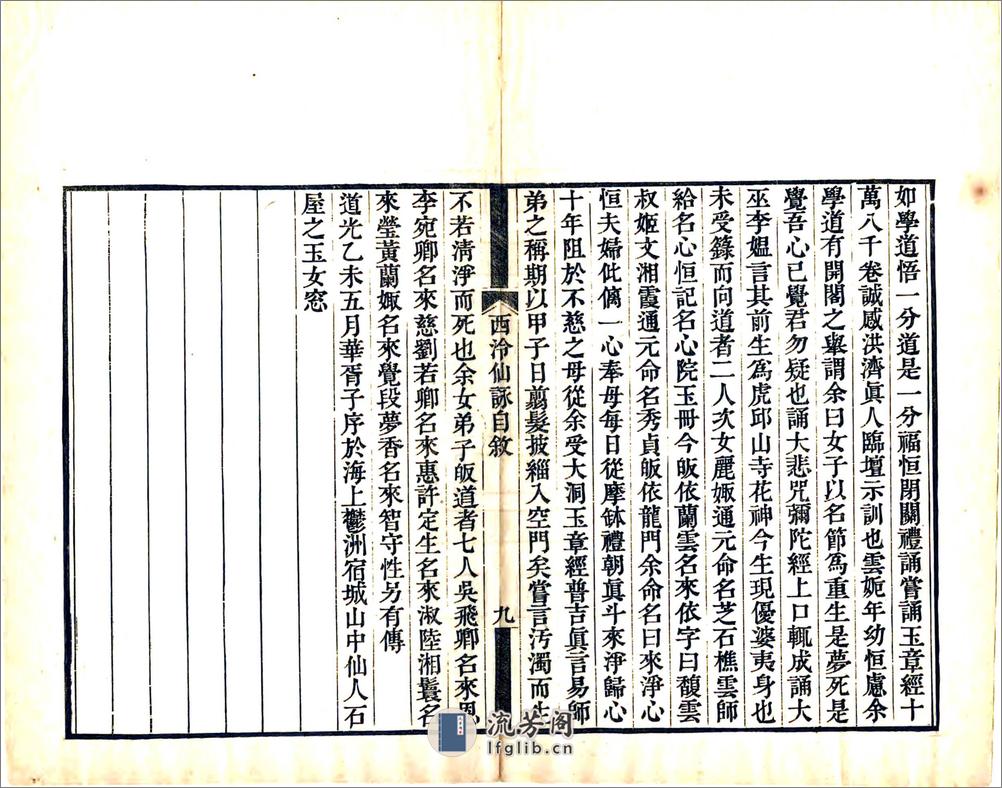 如學道悟一分道是一分福恒閉關禮誦嘗誦玉章經十
萬八千卷誠感洪濟眞人臨壇示訓也雲妮年幼恒慮余
學道有開閤之舉謂余曰女子以名節爲重生是夢死是
覺吾心已覺君勿疑也誦大悲咒彌陀經上口輒成誦大
巫李媼言其前生爲虎邱山寺花神今生現優婆夷身也
未受籙而向道者二人次女麗娵通元命名芝石樵雲師
給名心恒記名心院玉冊今皈依蘭雲名來依字曰馥雲
叔姬文湘霞通元命名秀貞皈依龍門余命名曰來淨心
恒夫婦仳㒧一心奉母每日從摩鉢禮朝眞斗來淨歸心
十年阻於不慈之母從余受大洞玉章經普吉眞言易師
弟之稱期以甲子日翦髮披緇入空門矣嘗言汚濁而生
西泠仙詠自敘
九
不若淸淨而死也余女弟子皈道者七人吳飛卿名來恩
李宛卿名來慈劉若卿名來惠許定生名來淑陸湘鬟名
來瑩黃蘭娵名來覺段夢香名來智守性另有傳
道光乙未五月華胥子序於海上鬱洲宿城山中仙人石
屋之玉女窓
流芳阁
lfglib.cn